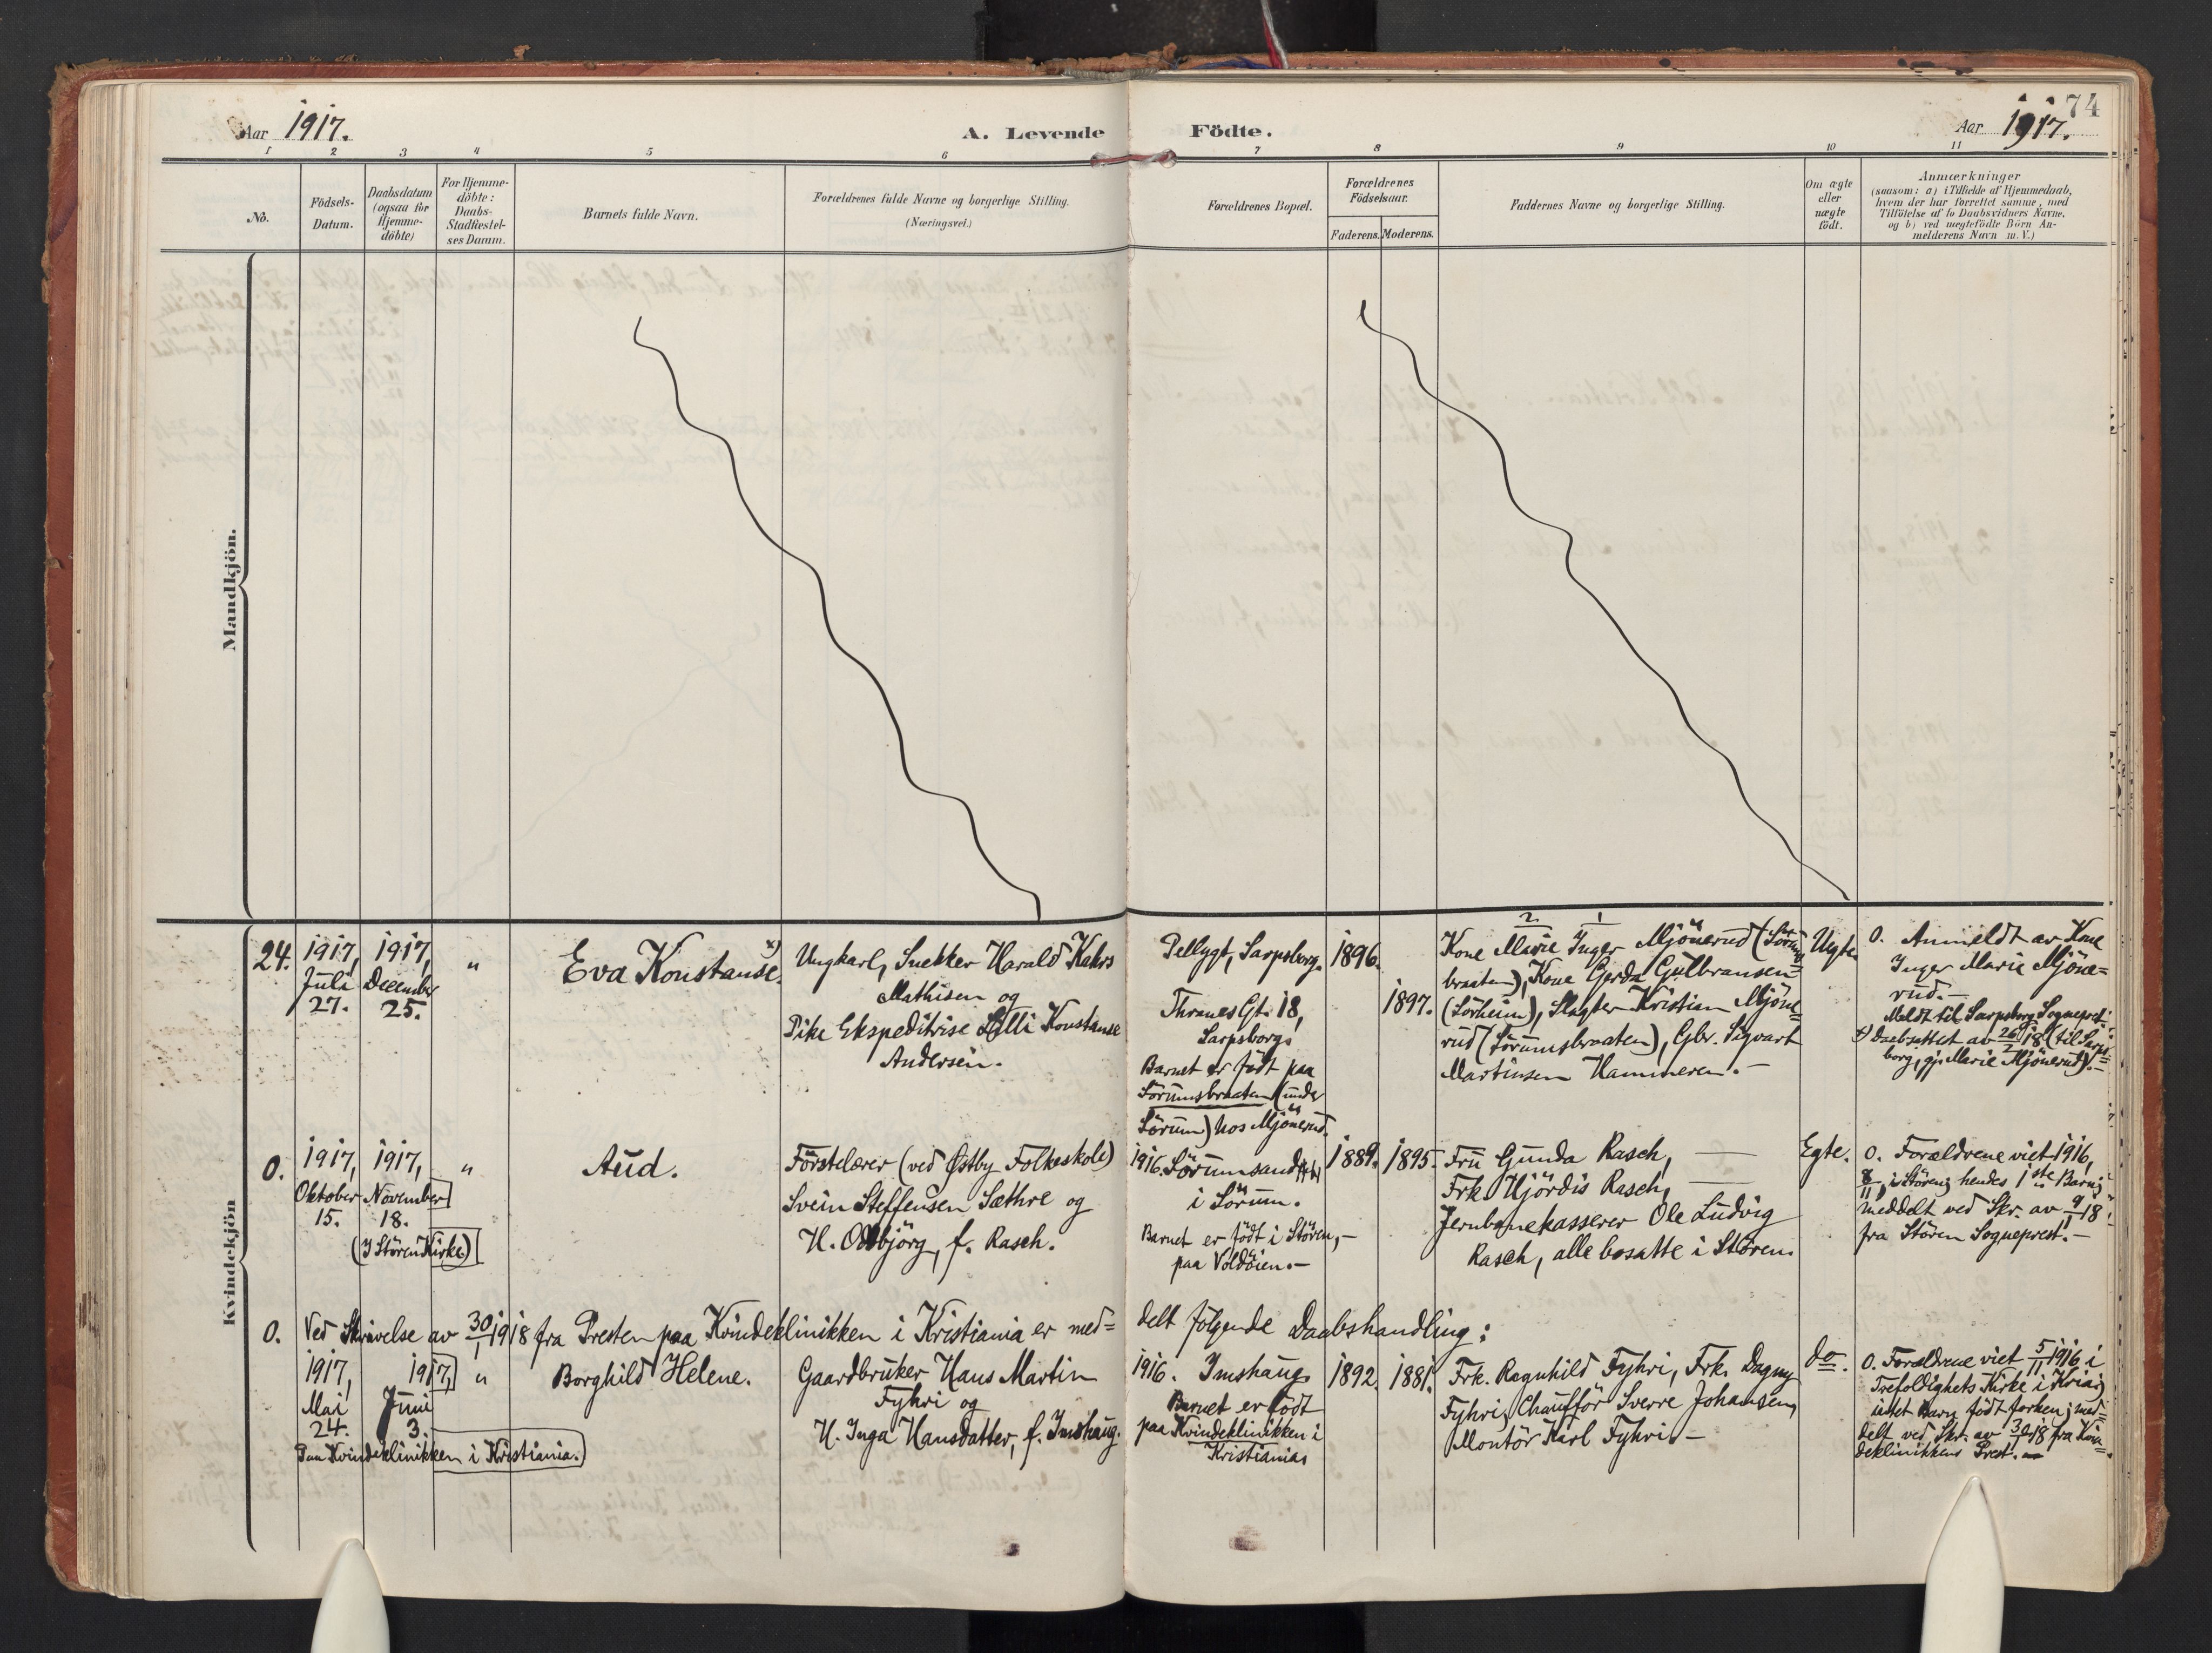 74
Aar 1917.
A. Levende Födte.
Aar 1917.
1 2 3 4 5 6 7 8 9 10 11
No.
Födsels-
Datum.
Daabsdatum
(ogsaa för
Hjemme-
döbte)
For Hjemme-
döbte:
Daabs-
Stadfæstel-
ses Datum.
Barnets fulde Navn.
Forældrenes fulde Navne og borgerlige Stilling.
(Næringsvei.)
Forældrenes Bopæl.
Forældrenes
Födselsaar.
Faderens. Moderens.
Faddernes Navne og borgerlige Stilling.
Om ægte
eller
uægte
födt.
Anmærkninger
(saasom: a) i Tilfælde af Hjemmedaab,
hvem der har forrettet samme, med
Tilföielse af to Daabsvidners Navne,
og b) ved uægtefödte Börn An-
melderens Navn m. V.)
Mandkjön.
Kvindekjön
24.
1917,
Juli
27.
1917,
December
25.
"
Eva Konstanse. x)
Ungkarl, Snekker Harald Kahrs
Mathisen og
Pike Ekspeditrise Lilli Konstanse
Andersen.
Pellygt, Sarpsborg.
Thranes Gt. 18,
Sarpsborg.
Barnet er födt paa
Sörumsbraaten (under
Sörum) hos Mjönerud.
1896.
1897.
2 1
Kone Marie Inger Mjönerud (Sörums
braaten), Kone Gerda Gulbransen
(Sörheim), Slagter Kristian Mjöne=
rud (Sörumsbraaten), Gbr. Sigvart
Martinsen Hammeren.—
Uegte.
O. Anmeldt av Kone
Inger Marie Mjöne=
rud.—
Meldt til Sarpsborg Sogneprest.
x) Daabsattest av 26/2 18 (til Sarps=
borg, gj. Marie Mjönerud).—
O.
1917,
Oktober
15.
1917,
November
18.
(I Stören Kirke)
"
Aud.
Förstelærer (ved Østby Folkeskole)
Svein Steffensen Sæthre og
H. Oddbjörg, f. Rasch.
1916. Sörumsand
i Sörum.
Barnet er födt i Stören,—
paa Voldöien.—
1889. 1895.
Fru Gunda Rasch, —
Frk. Hjördis Rasch, —
Jernbanekasserer Ole Ludvig
Rasch, alle bosatte i Stören.
Egte.
O. Forældrene viet 1916,
8/11, i Stören; hendes 1ste Barn;
meddelt ved Skr. av 9/1 18
fra Stören Sogneprest.—
O. Ved Skrivelse av 30/1 1918 fra Presten paa Kvindeklinikken i Kristiania er med=
delt følgende Daabshandling:
1917,
Mai
24.
1917,
Juni
3.
Paa Kvindeklinikken i Kristiania.
"
Borghild Helene.
Gaardbruker Hans Martin
Fyhri og
H. Inga Hansdatter, f. Imshaug.
1916. Imshaug.
Barnet er födt
paa Kvindeklinikken i
Kristiania.
1892. 1881.
Frk. Ragnhild Fyhri, Frk. Dagny
Fyhri, Chaufför Sverre Johansen,
Montör Karl Fyhri.—
do.
O. Forældrene viet 5/11 1916 i
Trefoldighets Kirke i Kria;
intet Barn födt forhen; med=
delt ved Skr. av 30/1 18 fra Kvin=
deklinikkens Prest.—